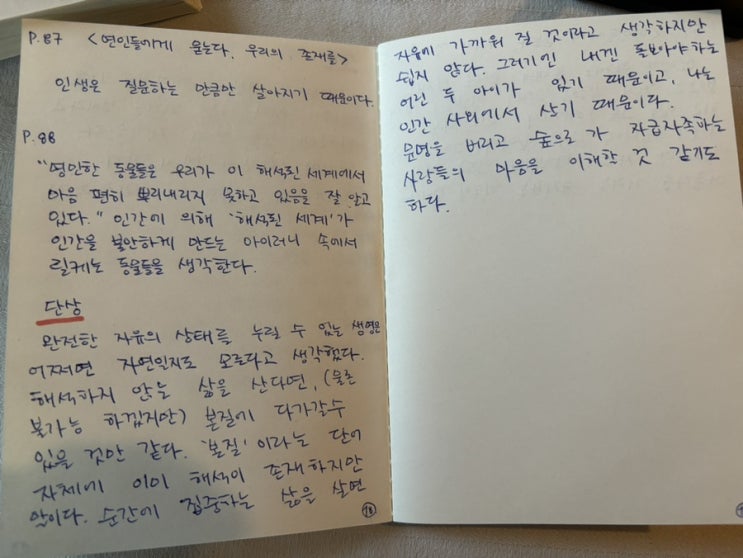 P.87 <연인들에게 묻는다, 우리의 존재를>
인생은 질문하는 만큼만 살아지기 때문이다.
P.88
"영민한 동물들은 우리가 이 해석된 세계에서
마음 편히 뿌리내리지 못하고 있음을 잘 알고
있다." 인간에 의해 '해석된 세계'가
인간을 불안하게 만드는 아이러니 속에서
릴케는 동물들을 생각한다.
단상
완전한 자유의 상태를 누릴 수 있는 생명은
어쩌면 자연일지도 모른다고 생각했다.
해석하지 않는 삶을 산다면, (물론
불가능 하겠지만) 본질에 다가갈수
있을 것만 같다. '본질'이라는 단어
자체에 이미 해석이 존재하지만
말이다. 순간에 집중하는 삶을 살면
18
자유에 가까워 질 것이라고 생각하지만
쉽지 않다. 그러기엔 내겐 돌봐야하는
어린 두 아이가 있기 때문이고, 나는
인간 사회에서 살기 때문이다.
문명을 버리고 숲으로 가 자급자족하는
사람들의 마음을 이해할 것 같기도
하다.